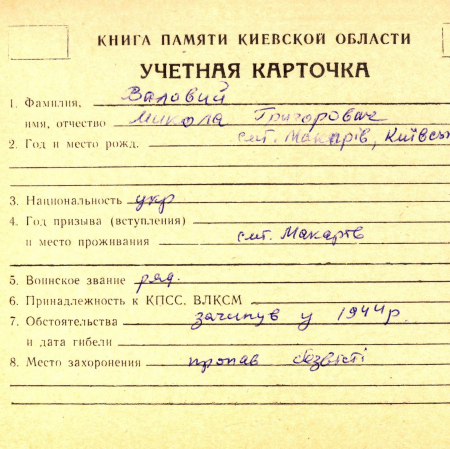 КНИГА ПАМЯТИ КИЕВСКОЙ ОБЛАСТИ
УЧЕТНАЯ КАРТОЧКА
1. Фамилия, Валовий
имя, отчество Микола Григорович
2. Год и место рожд. смт. Макарів, Київсь
3. Национальность укр
4. Год призыва (вступления)
и место проживания смт. Макарів
5. Воинское звание ряд.
6. Принадлежность к КПСС, ВЛКСМ
7. Обстоятельства загинув у 1944 р.
и дата гибели
8. Место захоронения пропав безвісті